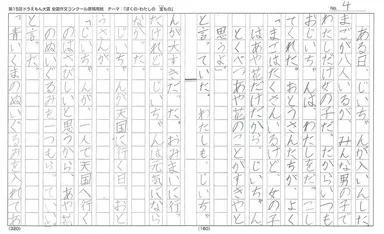 第15回ドラえもん大賞 全国作文コンクール原稿用紙 テーマ：「ぼくの・わたしの 宝もの」
No. 4
ある日、じいちゃんが入いんした。
まごが八人いるが、みんな男の子で
わたしだけ女の子だ。だからいつも
おじいちゃんは、わたしを
てくれた。おとうさんたちが、よく
「まごはたくさんいるけど、女の子
はあや花だけだから、じいちゃん
とくべつあや花のことがすきやと
思うよ。」
と言っていた。わたしも、じいちゃ
んが大すきだ。おみまいに行
だけれど、じいちゃんは元気になら
なかった。
じいちゃんが天国に行く日、おと
うさんが
「じいちゃんが、一人で天国へ行く
のはさびしいと思うから、あや花
のぬいぐるみを一つもらっていい
と言った。
「青いくまのぬいぐるみを入れてあ
(160)
(320)